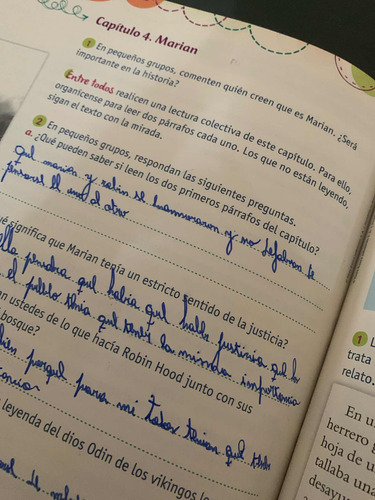 Capítulo 4. Marian
1 En pequeños grupos, comenten quién creen que es Marian. ¿Será
importante en la historia?
Entre todos realicen una lectura colectiva de este capítulo. Para ello,
organícense para leer dos párrafos cada uno. Los que no están leyendo,
sigan el texto con la mirada.
2 En pequeños grupos, respondan las siguientes preguntas.
a. ¿Qué pueden saber si leen los dos primeros párrafos del capítulo?
que marian y robin se enamoraron y no dejaban de
pensarse el uno al otro
ué significa que Marian tenía un estricto sentido de la justicia?
ella pensaba que había que haber justicia
el pueblo tenía que tener la misma importancia
an ustedes de lo que hacía Robin Hood junto con sus
bosque?
bien porque para mi todos tenian que tener
leyenda del dios Odin de los vikingos
1
trata
relato.
En u
herrero
hoja de u
tallaba una
desayu